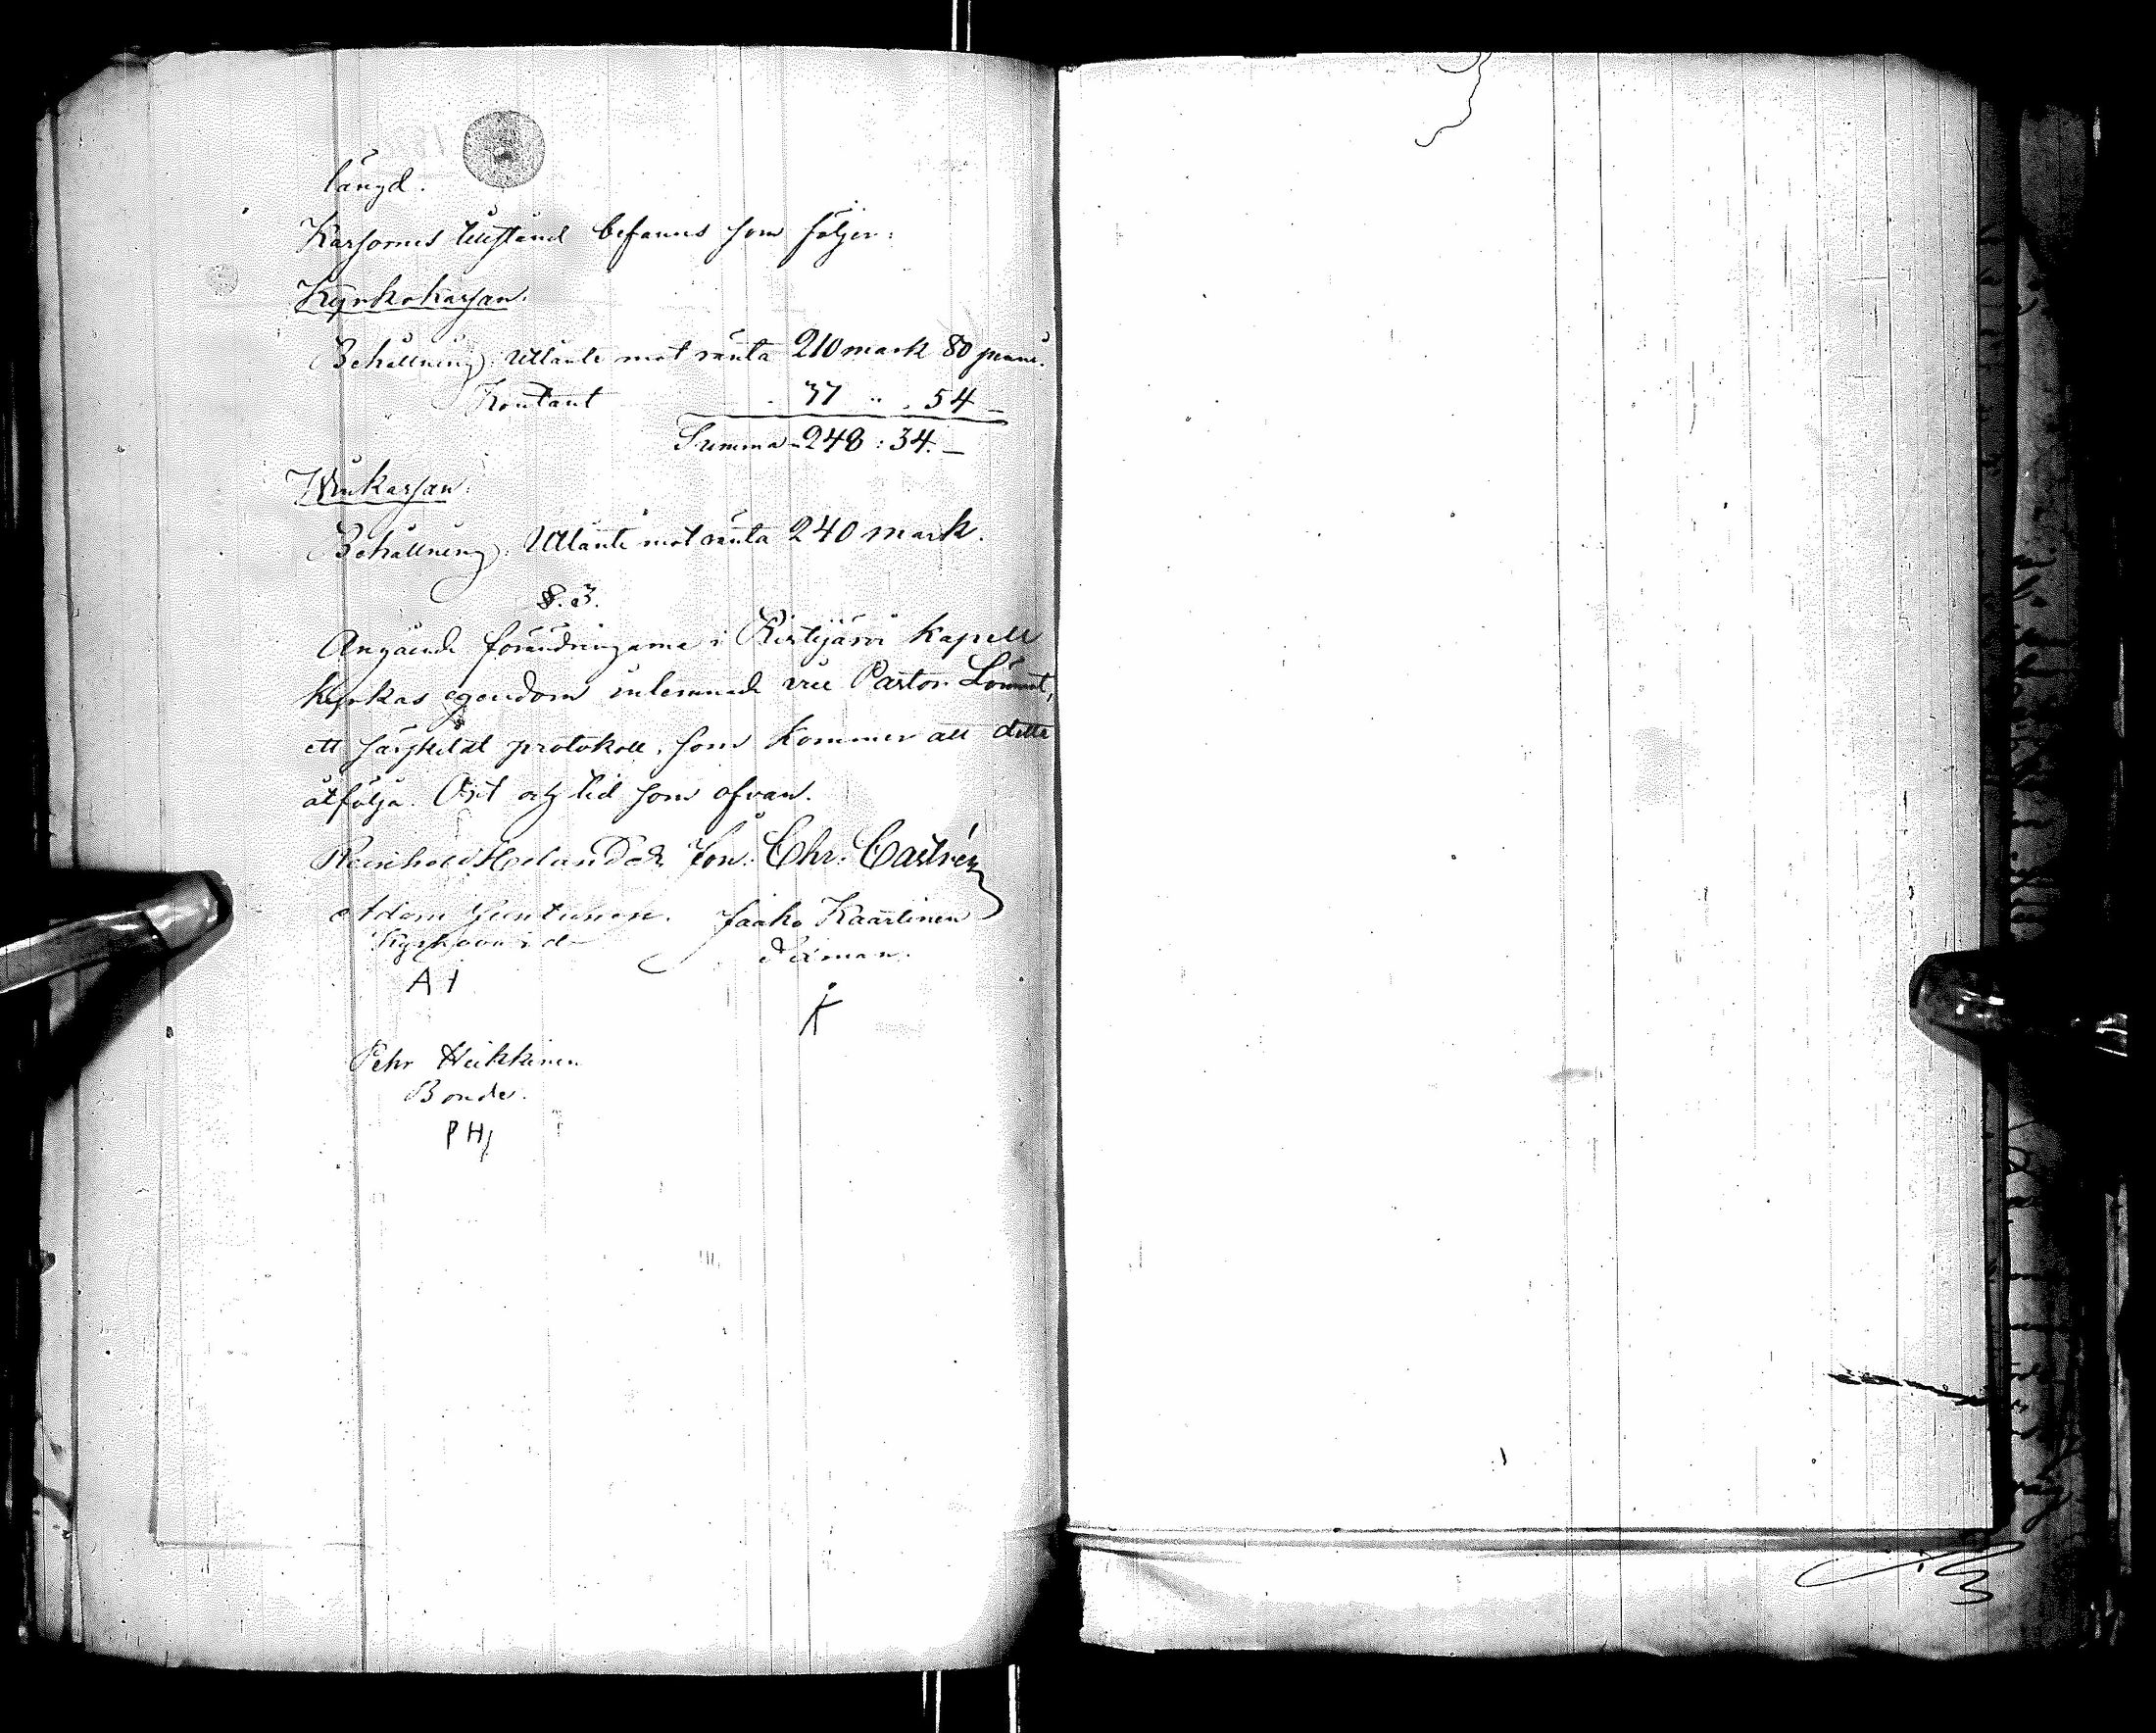 längd.
Kassornes tillstånd befanns som följer:
Kyrkokassan.
Behållning: Utlånte mot ränta 210 mark 80 penni.
Kontant - 37 " . 54 -
Summa - 248 : 34. -
Winkassan:
Behållning: Utlånte mot ränta 240 mark.
§. 3.
Angående förändringarna i Ristijärvi kapell
kyrkas egendom inlemnade vice Pastor
ett särskildt protokoll, som kommer att detta
åtfölja. Ort och tid som ofvan.
Reinhold Helander Jon. Chr. Castrén
Adam Juntunen. Jaako Kaartinen
Kyrkovärd Sexman.
A I K
Pehr Heikkinen
Bonde.
P H